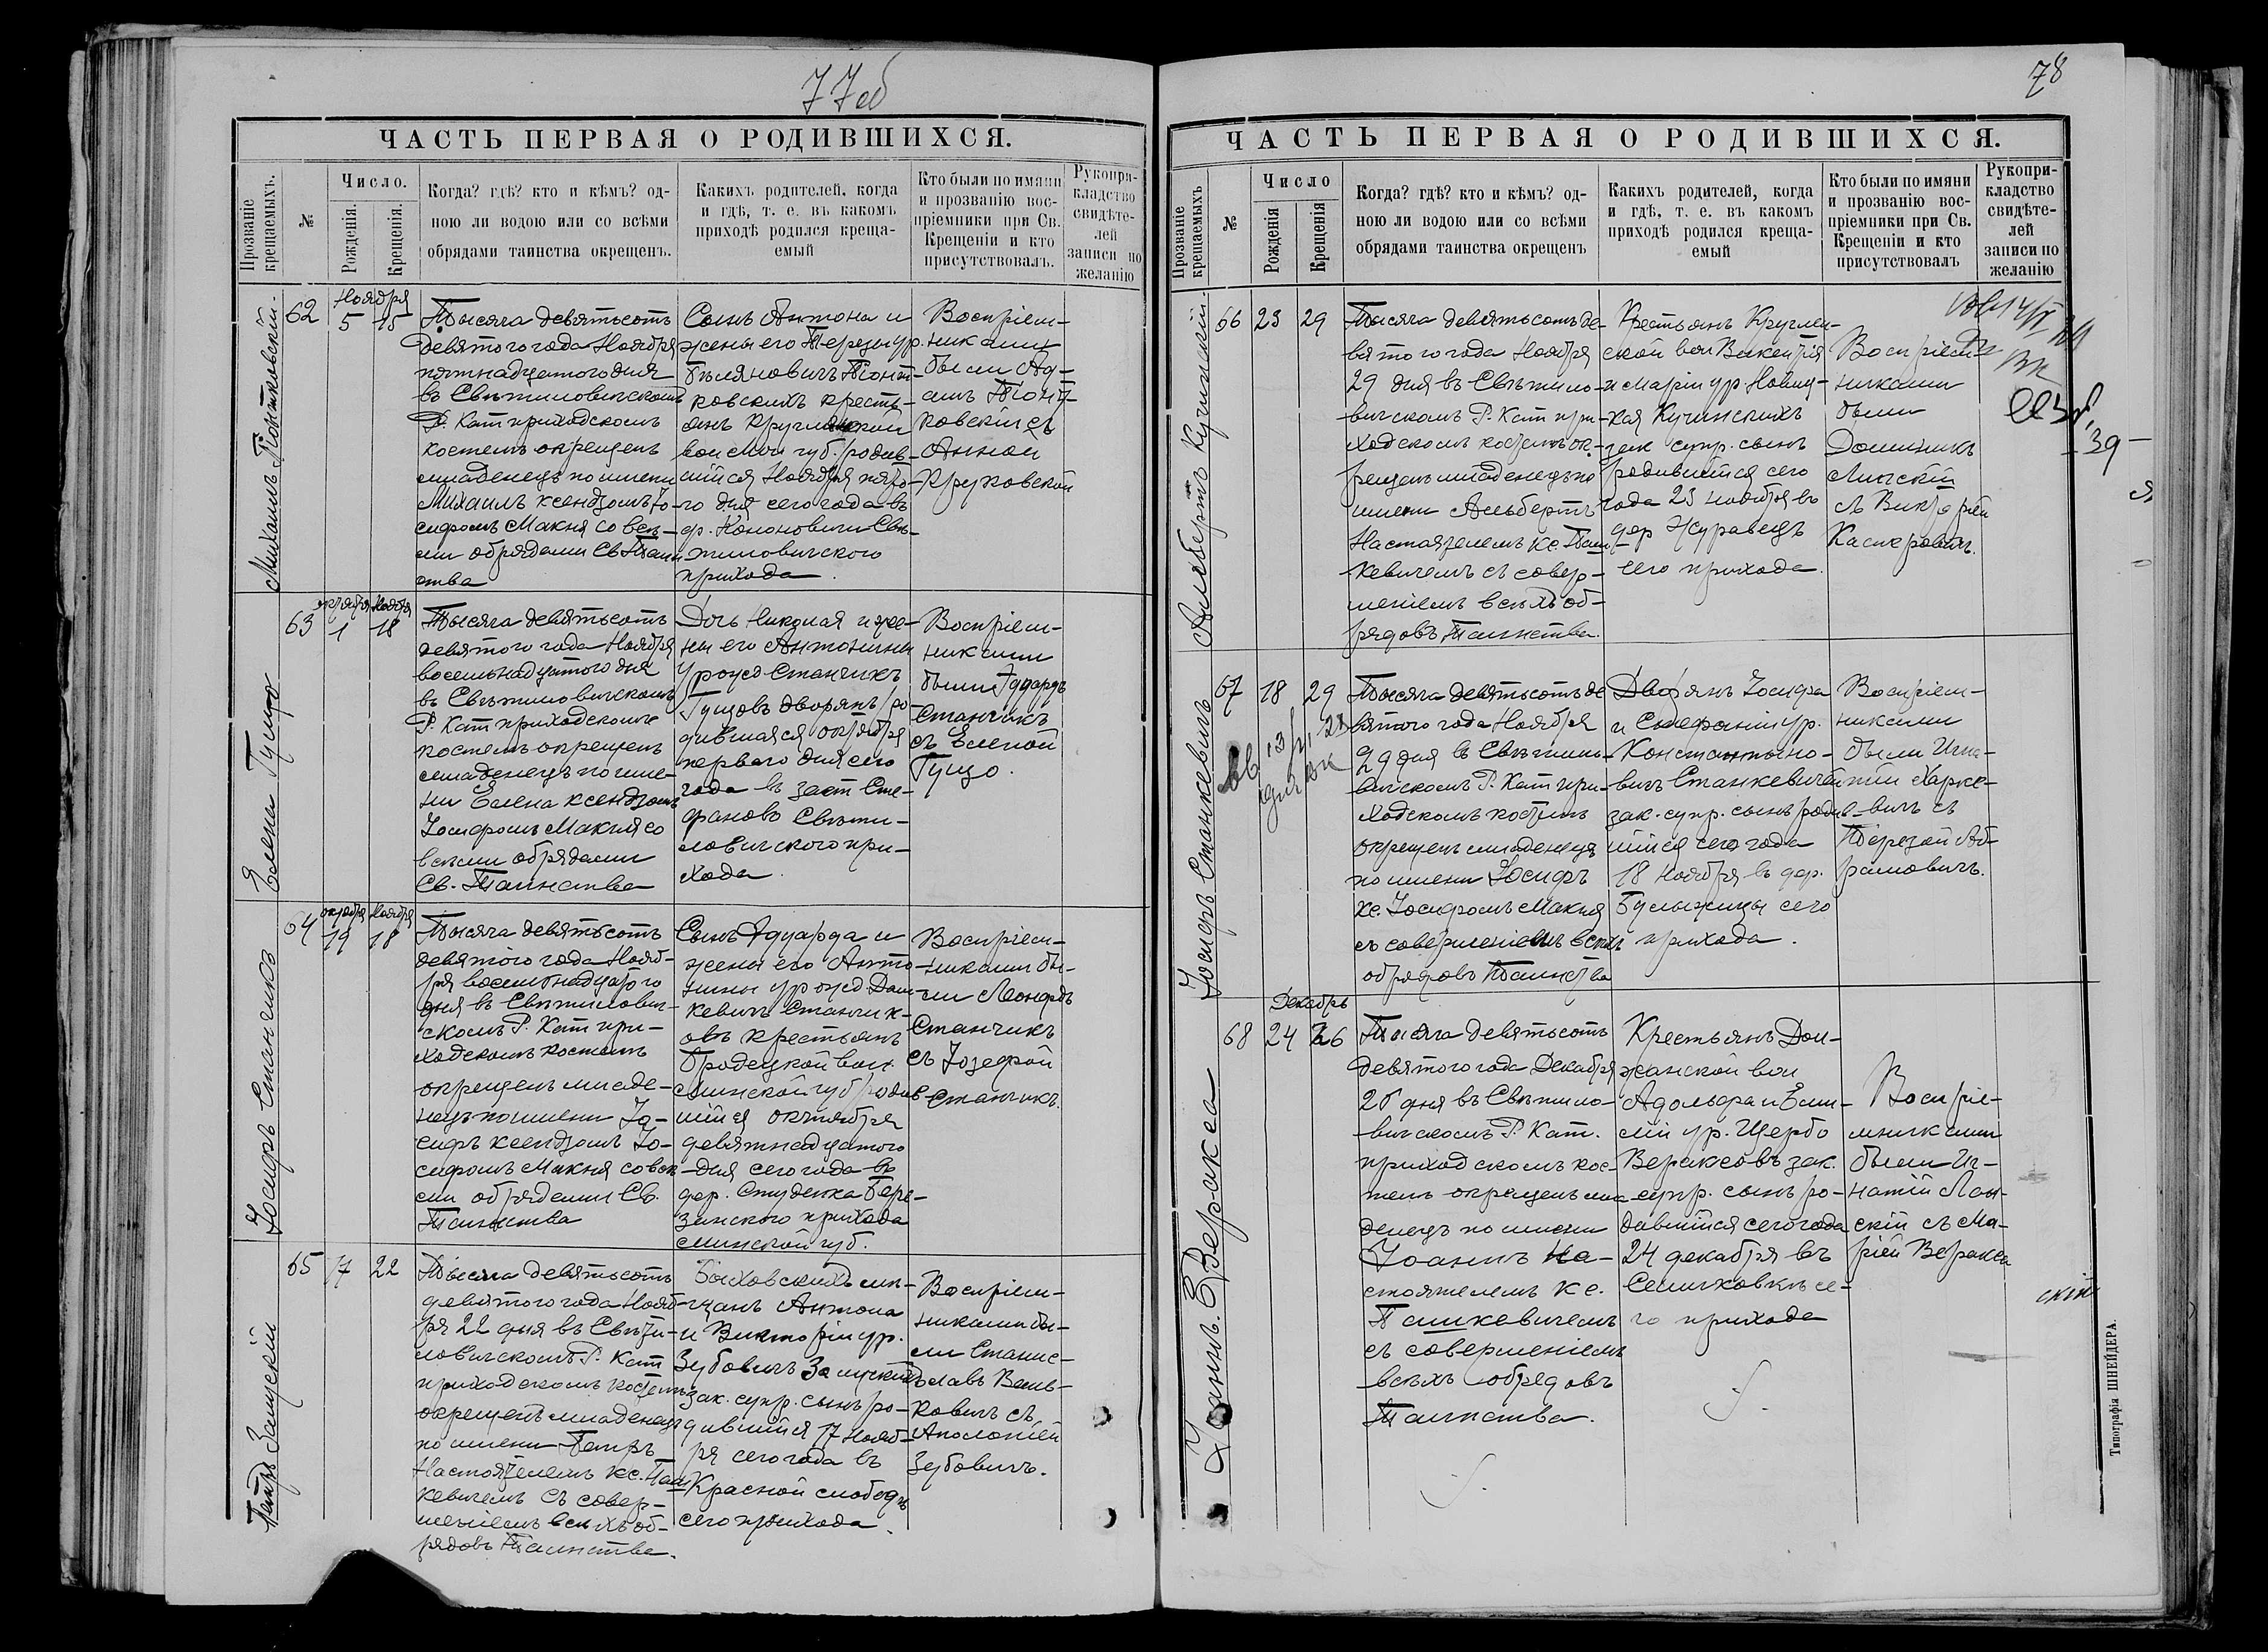 77об
ЧАСТЬ ПЕРВАЯ О РОДИВШИХСЯ.
Прозваніе крещаемыхъ.
№
Число.
Рожденія.
Крещенія.
Когда? гдѣ? кто и кѣмъ? од-
ною ли водою или со всѣми
обрядами таинства окрещенъ.
Какихъ родителей, когда
и гдѣ, т. е. въ какомъ
приходѣ родился креща-
емый
Кто были по имяни
и прозванію вос-
пріемники при Св.
Крещеніи и кто
присутствовалъ.
Рукопри-
кладство
свидѣте-
лей
записи по
желанію
Михаилъ Понтковскій.
62
Ноября
5 15
Тысяча девятьсотъ
девятого года Ноября
пятнадцатого дня
въ Свѣтиловичскомъ
Р. Кат приходскомъ
костелѣ окрещенъ
младенецъ по имени
Михаилъ ксендзомъ Іо-
сифомъ Макня со всѣ-
ми обрядами Св Таин
ства
Сынъ Антона и
жены его Терезы ур.
Тѣляновичъ Піонт-
ковскихъ кресть-
янъ Круглянской
вол Мог губ. родив-
шійся Ноября пято-
го дня сего года въ
др. Кононовичи Свѣ-
тиловичского
прихода.
Воспріем-
никами
были Ад-
амъ Піонт-
ковскій съ
Анной
Круковской
Елена Гуцо
63
октября Ноября
1 18
Тысяча девятьсотъ
девятого года Ноября
восемнадцатого дня
въ Свѣтиловичскомъ
Р. Кат приходскомъ
костелѣ окрещенъ
младенецъ по име-
ни Елена ксендзомъ
Іосифомъ Макня со
всѣми обрядами
Св. Таинства
Дочь Николая и же-
ны его Антонины
урожд Станчикъ
Гуцовъ дворянъ ро-
дившаяся октября
первого дня сего
года въ заст Сте-
фаново Свѣти-
ловичского при-
хода.
Воспріем-
никами
были Эдуардъ
Станчикъ
съ Еленой
Гуцо.
Іосифъ Станчикъ
64
октября Ноября
19 18
Тысяча девятьсотъ
девятого года Нояб-
ря восемнадцатого
дня въ Свѣтилович-
скомъ Р. Кат при-
ходскомъ костелѣ
окрещенъ младе-
нецъ по имени Іо-
сифъ ксендзомъ Іо-
сифомъ Макня со всѣ
ми обрядами Св.
Таинства
Сынъ Эдуарда и
жены его Анто-
нины урожд Даш-
кевичъ Станчик-
овъ крестьянъ
Бродецкой вол.
Минской губ родив
шійся октября
девятнадцатого
дня сего года въ
дер. Студенка Бере-
зинского прихода
Минской губ.
Воспріем-
никами бы-
ли Леонардъ
Станчикъ
съ Іозефой
Станчикъ.
Петръ Запускій
65
17 22
Тысяча девятьсотъ
девятого года Нояб-
ря 22 дня въ Свѣти-
ловичскомъ Р. Кат
приходскомъ костелѣ
окрещенъ младенецъ
по имени Петръ
Настоятелемъ кс. Паш
кевичемъ съ совер-
шеніемъ всѣхъ об-
рядовъ Таинства.
Быховскихъ мѣ-
щанъ Антона
и Викторіи ур.
Зубовичъ Запускихъ
зак. супр. сынъ ро-
дившійся 17 Нояб-
ря сего года въ
Красной слободѣ
сего прихода.
Воспріем-
никами бы-
ли Станис-
лавъ Вень-
ковичъ съ
Аполоніей
Зубовичъ.
78
ЧАСТЬ ПЕРВАЯ О РОДИВШИХСЯ.
Прозваніе крещаемыхъ
№
Число
Рожденія
Крещенія
Когда? гдѣ? кто и кѣмъ? од-
ною ли водою или со всѣми
обрядами таинства окрещенъ
Какихъ родителей, когда
и гдѣ, т. е. въ какомъ
приходѣ родился креща-
емый
Кто были по имяни
и прозванію вос-
пріемники при Св.
Крещеніи и кто
присутствовалъ
Рукопри-
кладство
свидѣте-
лей
записи по
желанію
Альбертъ Кучинскій.
66
23 29
Тысяча девятьсотъ де-
вятого года Ноября
29 дня въ Свѣтило-
вичскомъ Р. Кат при-
ходскомъ костелѣ ок-
рещенъ младенецъ по
имени Альбертъ
Настоятелемъ кс. Паш
кевичемъ съ совер-
шеніемъ всѣхъ об-
рядовъ Таинства.
Крестьянъ Круглян-
ской вол Викентія
и Маріи ур. Новиц-
кая Кучинскихъ
зак супр. сынъ
родившійся сего
года 23 ноября въ
дер Журавецъ
сего прихода.
Воспріем-
никами
были
Доминикъ
съ Викторіей
Касперовичъ.
39
Іосифъ Станкевичъ
67
18 29
Тысяча девятьсотъ де
вятого года Ноября
29 дня въ Свѣтило-
вичскомъ Р. Кат при-
ходскомъ костелѣ
окрещенъ младенецъ
по имени Іосифъ
кс. Іосифомъ Макня
съ совершеніемъ всѣхъ
обрядовъ Таинства
Дворянъ Іосифа
и Стефаніи ур.
Константино-
вичъ Станкевичей
зак. супр. сынъ родив-
шійся сего года
18 ноября въ дер.
Булыжицы сего
прихода.
Воспріем-
никами
были Игна-
тій Харке-
вичъ съ
Терезой Аб-
рамовичъ.
Іоаннъ Веракса
68
Декабрь
24 26
Тысяча девятьсотъ
девятого года Декабря
26 дня въ Свѣтило-
вичскомъ Р. Кат.
приходскомъ кос-
телѣ окрещенъ мла-
денецъ по имени
Іоаннъ На-
стоятелемъ кс.
Пашкевичемъ
съ совершеніемъ
всѣхъ обрядовъ
Таинства.
Крестьянъ Дол-
жанской вол
Адольфа и Еми-
ліи ур. Щербо
Вераксовъ зак.
супр. сынъ ро-
дившійся сего года
24 декабря въ
Семиковкѣ се-
го прихода
Воспріе-
мниками
были Иг-
натій Лан-
скій съ Ма-
ріей Веракса
Типографія ШНЕЙДЕРА.